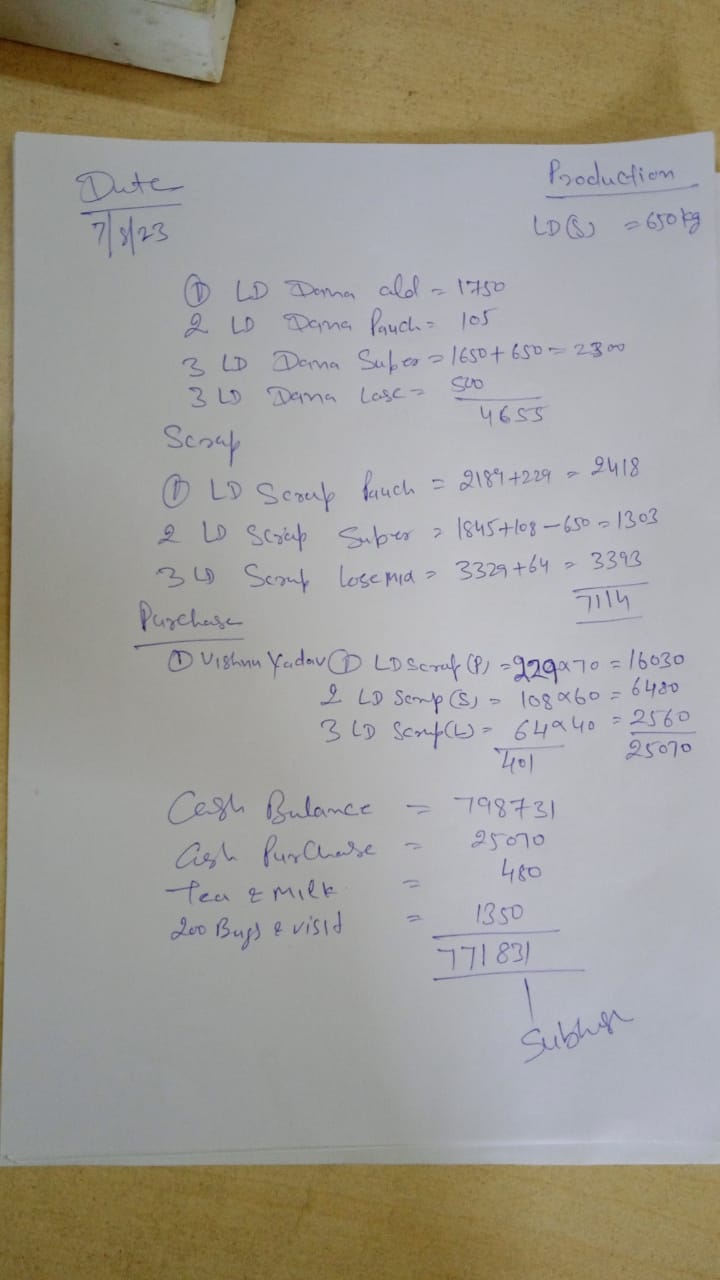 Date
Production
7/8/23
LD(S) = 650 kg
① LD Dana old = 1750
2 LD Dana Pauch = 105
3 LD Dana Super = 1650 + 650 = 2300
3 LD Dana Lose = 500
4655
Scrap
① LD Scrap Pauch = 2189+229 = 2418
2 LD Scrap Super = 1845+108-650 = 1303
3 LD Scrap Lose Mid = 3329+64 = 3393
7114
Purchase
① Vishnu Yadav ① LD Scrap (P) = 229x70 = 16030
2 LD Scrap (S) = 108x60 = 6480
3 LD Scrap (L) = 64x40 = 2560
401 25070
Cash Balance = 798731
Cash Purchase = 25070
Tea & Milk = 480
200 Bags & = 1350
771831
Subhash